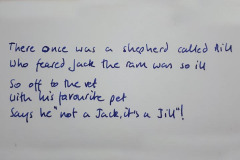 There once was a shepherd called Bill
Who feared Jack the ram was so ill
So off to the vet
With his favourite pet
Says he "not a Jack, it's a Jill"!